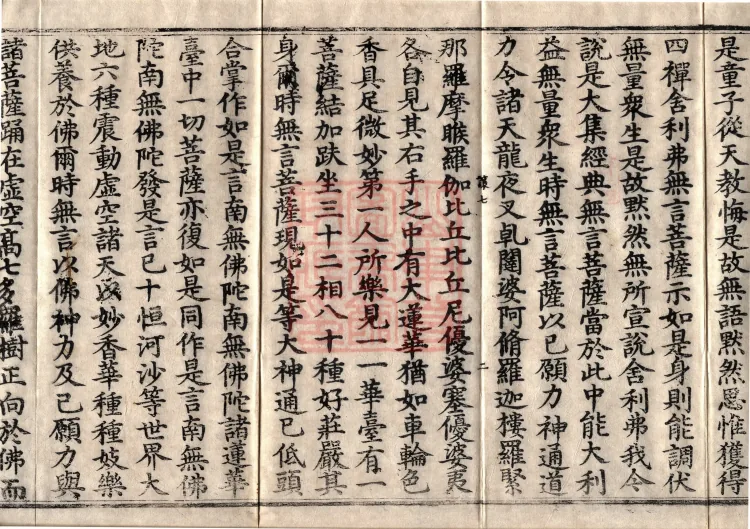 是童子從天教悔是故無語默然思惟獲得
四禪舍利弗無言菩薩示如是身則能調伏
無量衆生是故默然無所宣說舍利弗我今
說是大集經典無言菩薩當於此中能大利
益無量衆生時無言菩薩以已願力神通道
力令諸天龍夜叉乹闥婆阿脩羅迦樓羅緊
二
那羅摩睺羅伽比丘比丘尼優婆塞優婆夷
各自見其右手之中有大蓮華猶如車輪色
香具足微妙第一人所樂見一一華臺有一
菩薩結加趺坐三十二相八十種好莊嚴其
身爾時無言菩薩現如是等大神通已低頭
合掌作如是言南無佛陀南無佛陀諸蓮華
臺中一切菩薩亦復如是同作是言南無佛
陀南無佛陀發是言已十恒河沙等世界大
地六種震動虛空諸天以妙香華種種妓樂
供養於佛爾時無言以佛神力及已願力與
諸菩薩踊在虛空髙七多羅樹正向於佛而